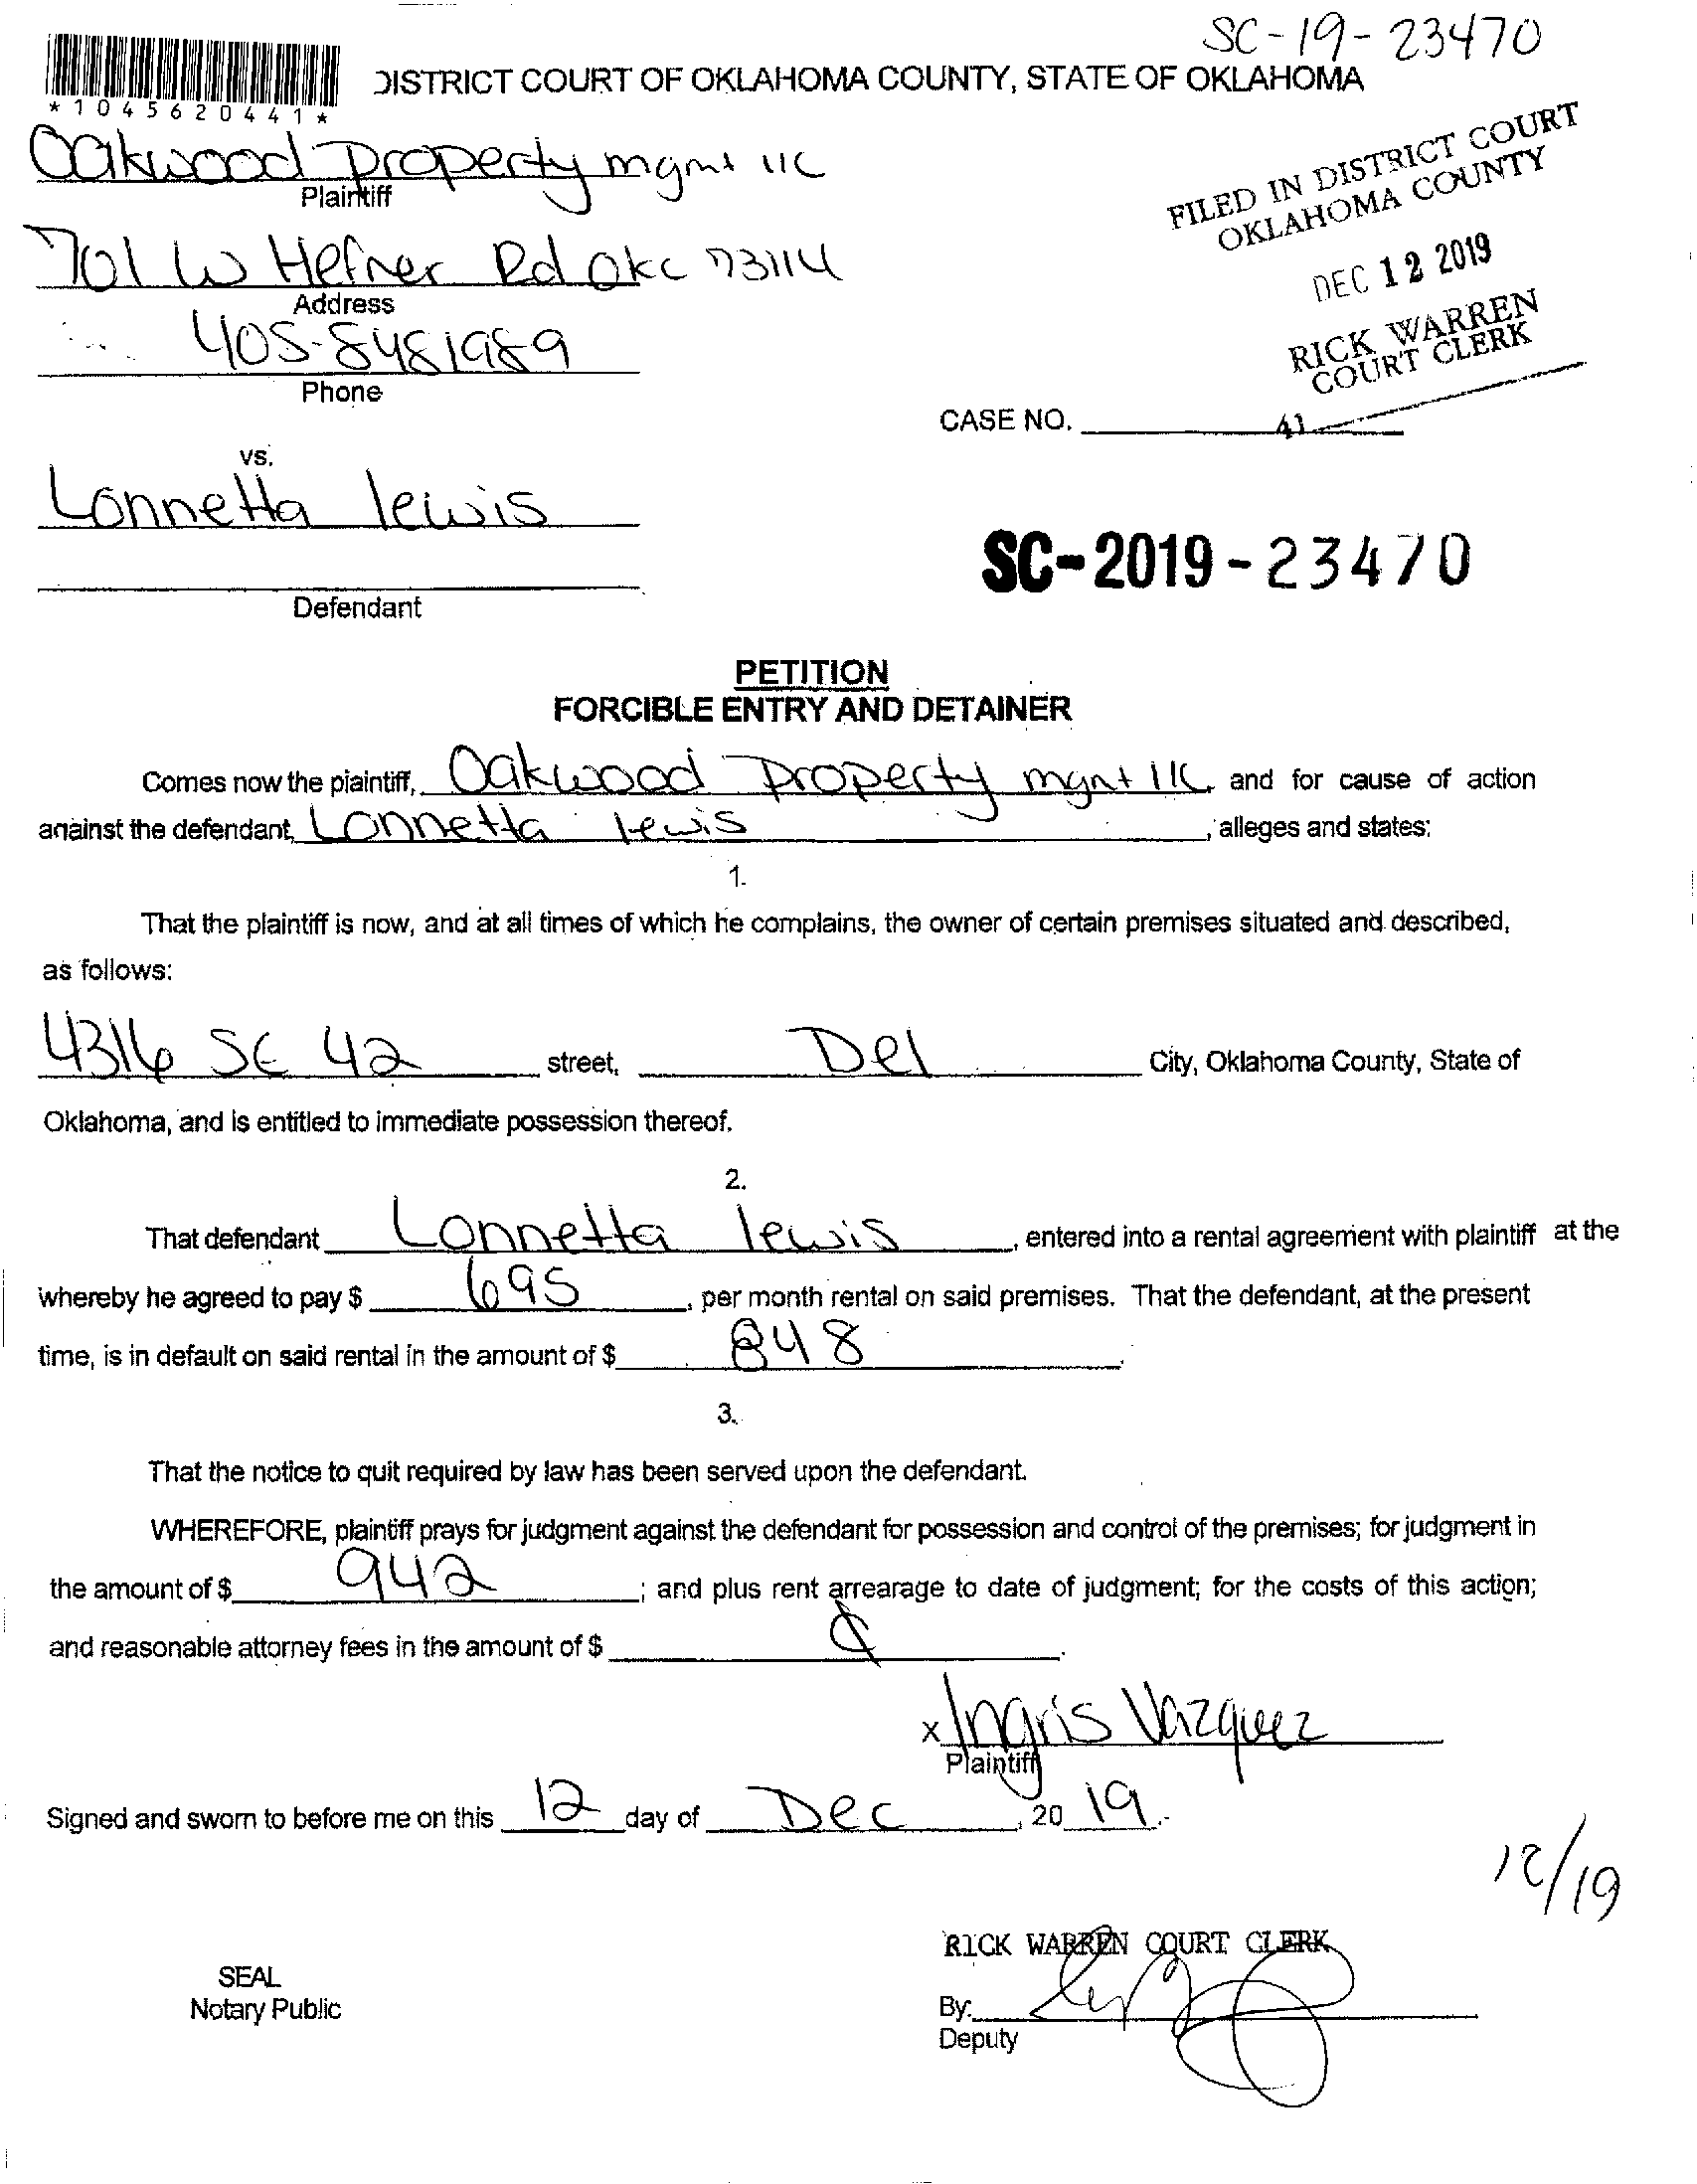 SC-19-23470
DISTRICT COURT OF OKLAHOMA COUNTY, STATE OF OKLAHOMA
*1045620441*
Oakwood Property mgmt llc
Plaintiff
FILED IN DISTRICT COURT
OKLAHOMA COUNTY
701 W Hefner Rd OKC 73114
Address
DEC 12 2019
405-8481989
Phone
RICK WARREN
COURT CLERK
CASE NO.
41
vs.
Lonnetta lewis
SC-2019-23470
Defendant
PETITION
FORCIBLE ENTRY AND DETAINER
Comes now the plaintiff, Oakwood Property mgnt llc, and for cause of action
against the defendant, Lonnetta lewis, alleges and states:
1.
That the plaintiff is now, and at all times of which he complains, the owner of certain premises situated and described,
as follows:
4316 SE 42 street, Del City, Oklahoma County, State of
Oklahoma, and is entitled to immediate possession thereof.
2.
That defendant Lonnetta lewis, entered into a rental agreement with plaintiff at the
whereby he agreed to pay $ 695, per month rental on said premises. That the defendant, at the present
time, is in default on said rental in the amount of $ 848.
3.
That the notice to quit required by law has been served upon the defendant.
WHEREFORE, plaintiff prays for judgment against the defendant for possession and control of the premises; for judgment in
the amount of $ 942; and plus rent arrearage to date of judgment; for the costs of this action;
and reasonable attorney fees in the amount of $
x Ingris Vazquez
Plaintiff
Signed and sworn to before me on this 12 day of Dec, 2019.
12/19
RICK WARREN COURT CLERK
SEAL
Notary Public
By:
Deputy